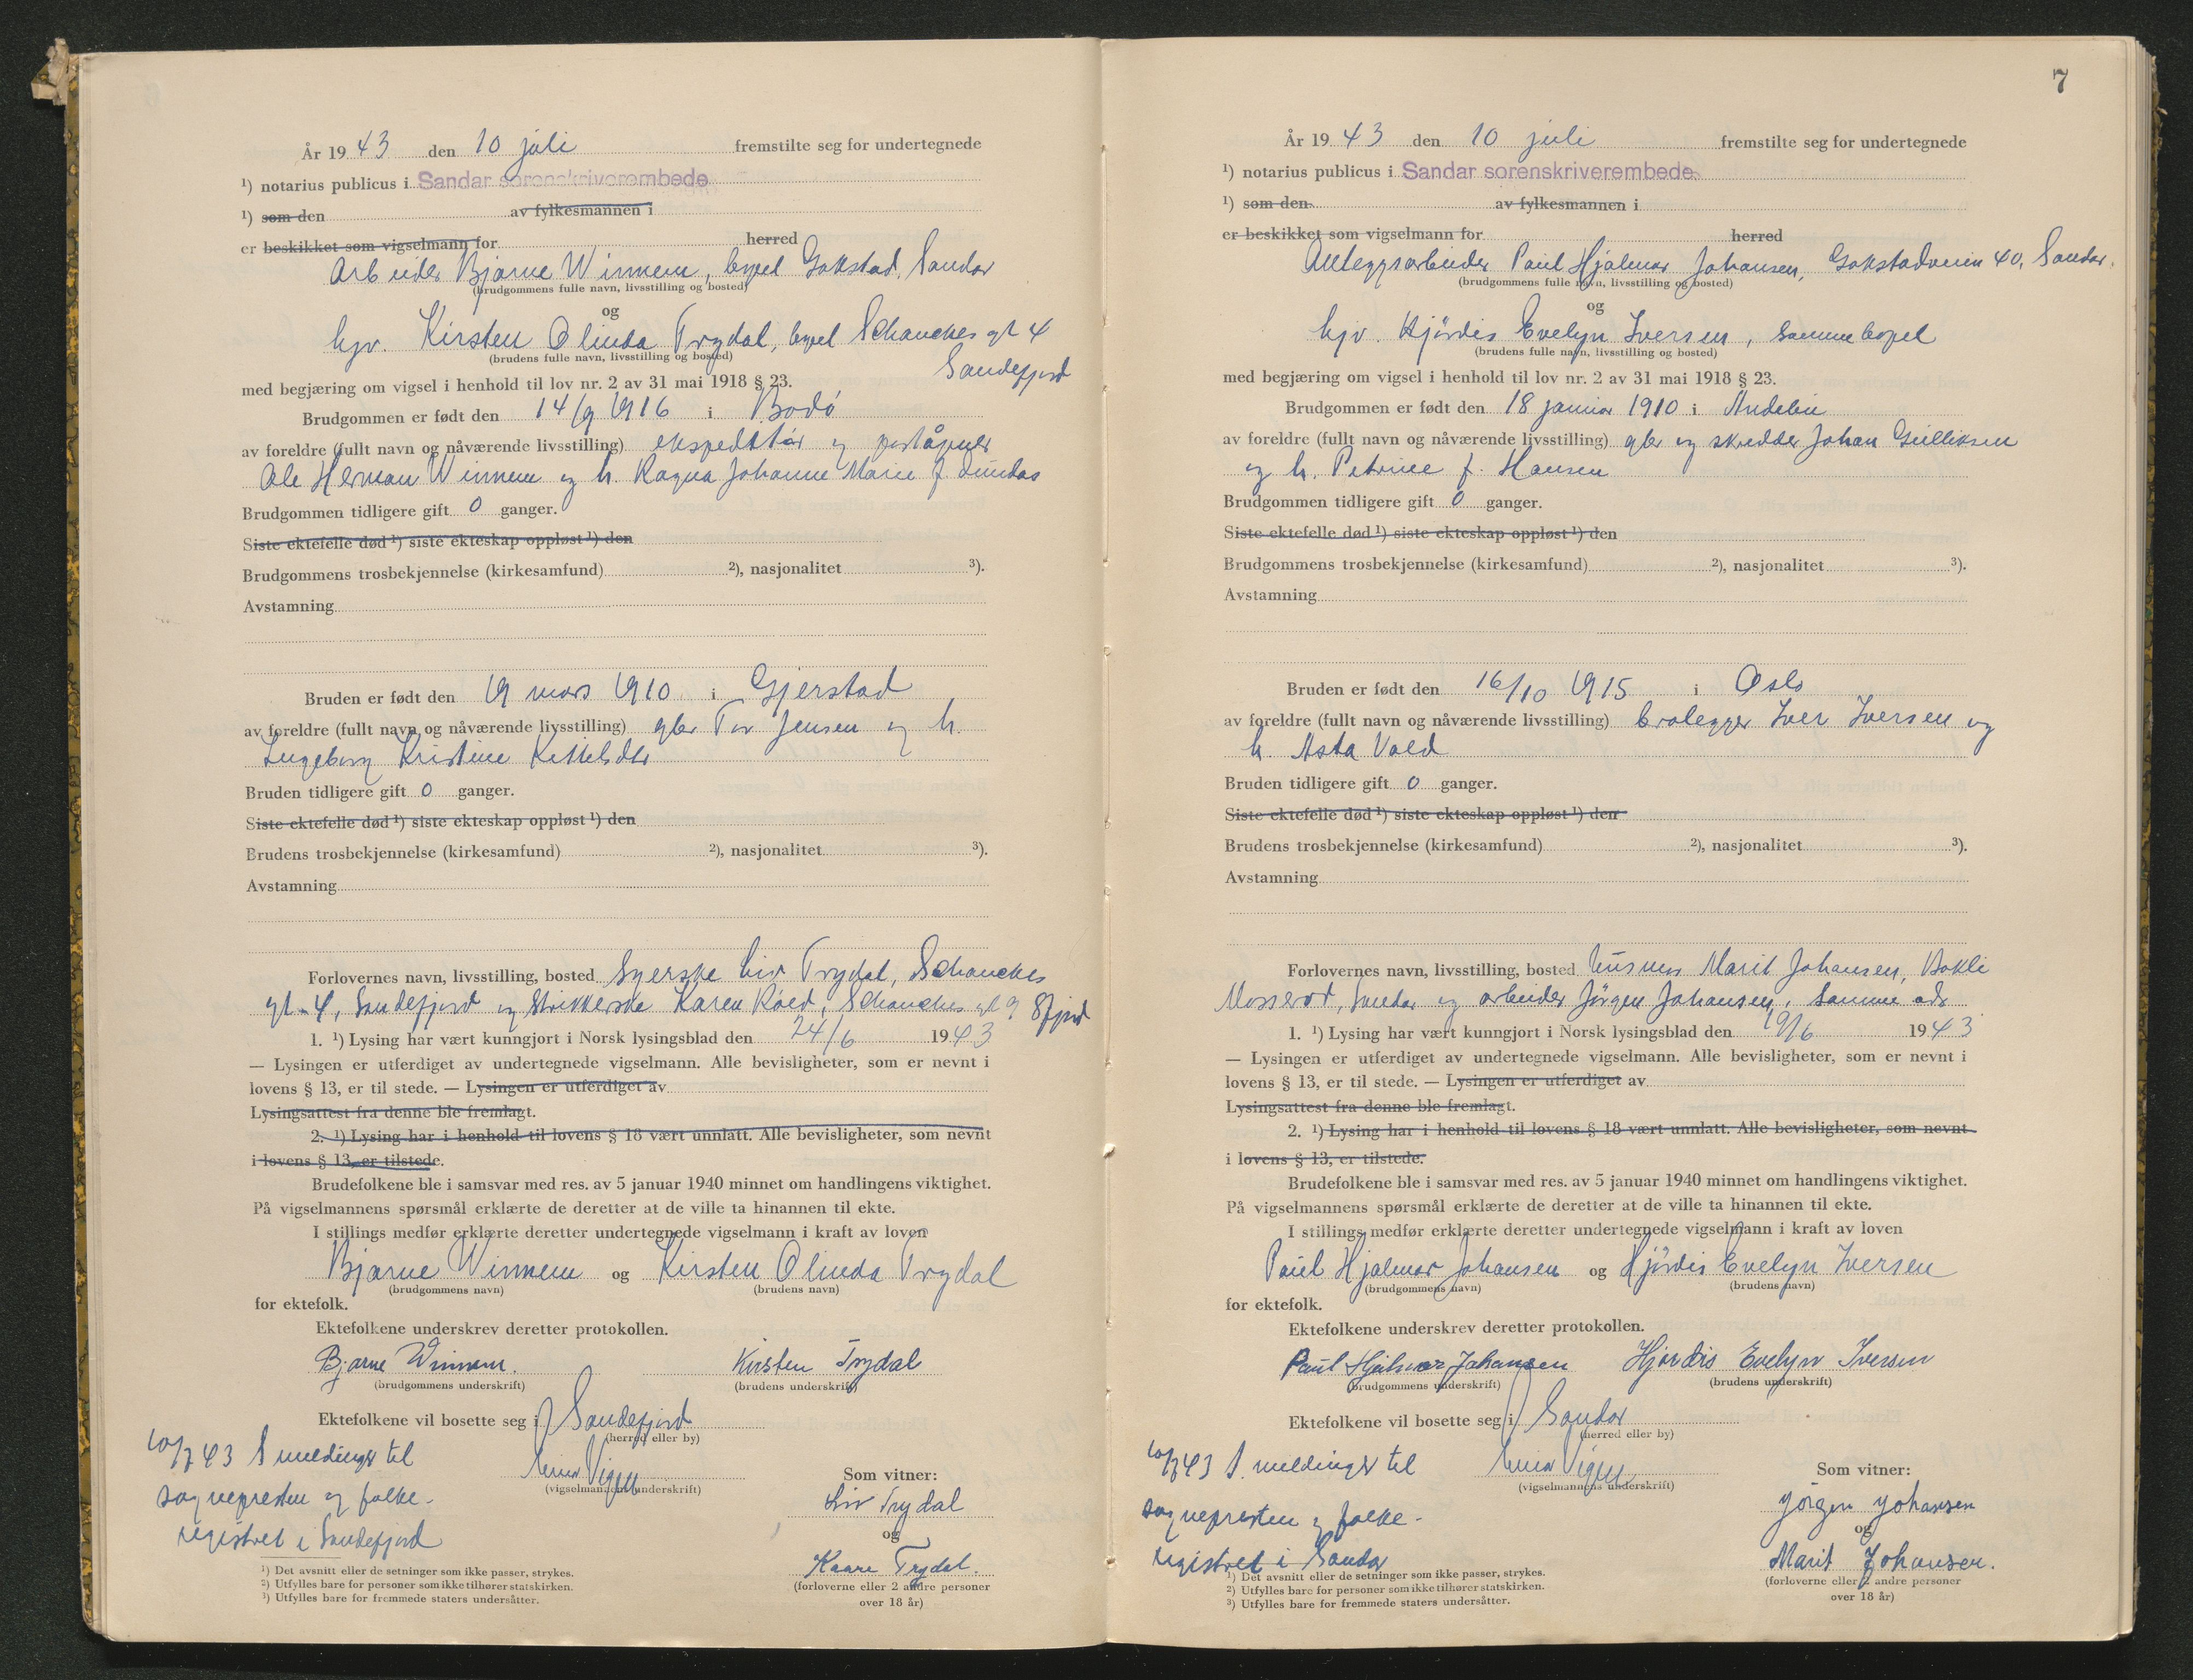 År 1943 den 10 juli fremstilte seg for undertegnede
¹) notarius publicus i Sandar sorenskriverembede
¹) som den av fylkesmannen i
er beskikket som vigselmann for herred
Arbeider Bjarne Winnem, bopel Gokstad, Sandar
(brudgommens fulle navn, livsstilling og bosted)
og
hjv. Kirsten Olinda Trydal, bopel Schanckes gt 4
(brudens fulle navn, livsstilling og bosted)
Sandefjord
med begjæring om vigsel i henhold til lov nr. 2 av 31 mai 1918 § 23.
Brudgommen er født den 14/9 1916 i Bodö
av foreldre (fullt navn og nåværende livsstilling) ekspeditör og poståpner
Ole Herman Winnem og h. Ragna Johanne Marie f.
Brudgommen tidligere gift 0 ganger.
Siste ektefelle død ¹) siste ekteskap oppløst ¹) den
Brudgommens trosbekjennelse (kirkesamfund) ²), nasjonalitet ³).
Avstamning
Bruden er født den 19 mars 1910 i Gjerstad
av foreldre (fullt navn og nåværende livsstilling) gbr Tor Jensen og h.
Ingeborg Kristine Kittelsdtr
Bruden tidligere gift 0 ganger.
Siste ektefelle død ¹) siste ekteskap oppløst ¹) den
Brudens trosbekjennelse (kirkesamfund) ²), nasjonalitet ³).
Avstamning
Forlovernes navn, livsstilling, bosted Syerske Liv Trydal, Schanckes
gt. 4, Sandefjord og Strikkerske Karen Röed, Schanckes gt 9 Sfjord
1. ¹) Lysing har vært kunngjort i Norsk lysingsblad den 24/6 1943
— Lysingen er utferdiget av undertegnede vigselmann. Alle bevisligheter, som er nevnt i
lovens § 13, er til stede. — Lysingen er utferdiget av
Lysingsattest fra denne ble fremlagt.
2. ¹) Lysing har i henhold til lovens § 18 vært unnlatt. Alle bevisligheter, som nevnt
i lovens § 13, er tilstede.
Brudefolkene ble i samsvar med res. av 5 januar 1940 minnet om handlingens viktighet.
På vigselmannens spørsmål erklærte de deretter at de ville ta hinannen til ekte.
I stillings medfør erklærte deretter undertegnede vigselmann i kraft av loven
Bjarne Winnem og Kirsten Olinda Trydal
(brudgommens navn) (brudens navn)
for ektefolk.
Ektefolkene underskrev deretter protokollen.
Bjarne Winnem. Kirsten Trydal
(brudgommens underskrift) (brudens underskrift)
Ektefolkene vil bosette seg i Sandefjord
(herred eller by)
10/7 43 S meldinger til
sognepresten og folke-
registret i Sandefjord
Vigen
(vigselmannens underskrift)
Som vitner:
Liv Trydal
og
Kaare Trydal.
(forloverne eller 2 andre personer
over 18 år)
¹) Det avsnitt eller de setninger som ikke passer, strykes.
²) Utfylles bare for personer som ikke tilhører statskirken.
³) Utfylles bare for fremmede staters undersåtter.
7
År 1943 den 10 juli fremstilte seg for undertegnede
¹) notarius publicus i Sandar sorenskriverembede
¹) som den av fylkesmannen i
er beskikket som vigselmann for herred
Anleggsarbeider Paul Hjalmar Johansen, Gokstadveien 40, Sandar.
(brudgommens fulle navn, livsstilling og bosted)
og
hjv. Hjördis Evelyn Iversen, samme bopel
(brudens fulle navn, livsstilling og bosted)
med begjæring om vigsel i henhold til lov nr. 2 av 31 mai 1918 § 23.
Brudgommen er født den 18 januar 1910 i Andebu
av foreldre (fullt navn og nåværende livsstilling) gbr og skredder Johan Gulliksen
og h. Petrine f. Hansen
Brudgommen tidligere gift 0 ganger.
Siste ektefelle død ¹) siste ekteskap oppløst ¹) den
Brudgommens trosbekjennelse (kirkesamfund) ²), nasjonalitet ³).
Avstamning
Bruden er født den 16/10 1915 i Oslo
av foreldre (fullt navn og nåværende livsstilling) brolegger Iver Iversen og
h. Asta Vold
Bruden tidligere gift 0 ganger.
Siste ektefelle død ¹) siste ekteskap oppløst ¹) den
Brudens trosbekjennelse (kirkesamfund) ²), nasjonalitet ³).
Avstamning
Forlovernes navn, livsstilling, bosted husmor Marit Johansen, Bokli
Mosserød, Sandar og arbeider Jörgen Johansen, samme adr
1. ¹) Lysing har vært kunngjort i Norsk lysingsblad den 19/6 1943
— Lysingen er utferdiget av undertegnede vigselmann. Alle bevisligheter, som er nevnt i
lovens § 13, er til stede. — Lysingen er utferdiget av
Lysingsattest fra denne ble fremlagt.
2. ¹) Lysing har i henhold til lovens § 18 vært unnlatt. Alle bevisligheter, som nevnt
i lovens § 13, er tilstede.
Brudefolkene ble i samsvar med res. av 5 januar 1940 minnet om handlingens viktighet.
På vigselmannens spørsmål erklærte de deretter at de ville ta hinannen til ekte.
I stillings medfør erklærte deretter undertegnede vigselmann i kraft av loven
Paul Hjalmar Johansen og Hjördis Evelyn Iversen
(brudgommens navn) (brudens navn)
for ektefolk.
Ektefolkene underskrev deretter protokollen.
Paul Hjalmar Johansen Hjördis Evelyn Iversen
(brudgommens underskrift) (brudens underskrift)
Ektefolkene vil bosette seg i Sandar
(herred eller by)
10/7 43 S. meldinger til
sognepresten og folke-
registret i Sandar
Vigen
(vigselmannens underskrift)
Som vitner:
Jörgen Johansen
og
Marit Johansen.
(forloverne eller 2 andre personer
over 18 år)
¹) Det avsnitt eller de setninger som ikke passer, strykes.
²) Utfylles bare for personer som ikke tilhører statskirken.
³) Utfylles bare for fremmede staters undersåtter.